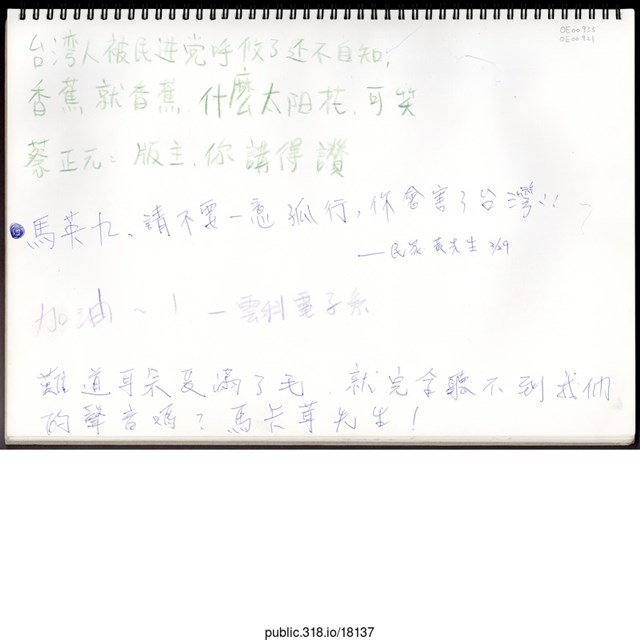 OE00921
台湾人被民进党呼攸了还不自知,
香蕉就香蕉.什麼太阳花.可笑
蔡正元:版主.你講得讚
馬英九、請不要一意孤行,你會害了台灣!!
—民眾 黃先生 3/29
加油~! —雲科電子系
難道耳朵長滿了毛.就完全聽不到我們
的聲音嗎?馬卡茸先生!
public.318.io/18137